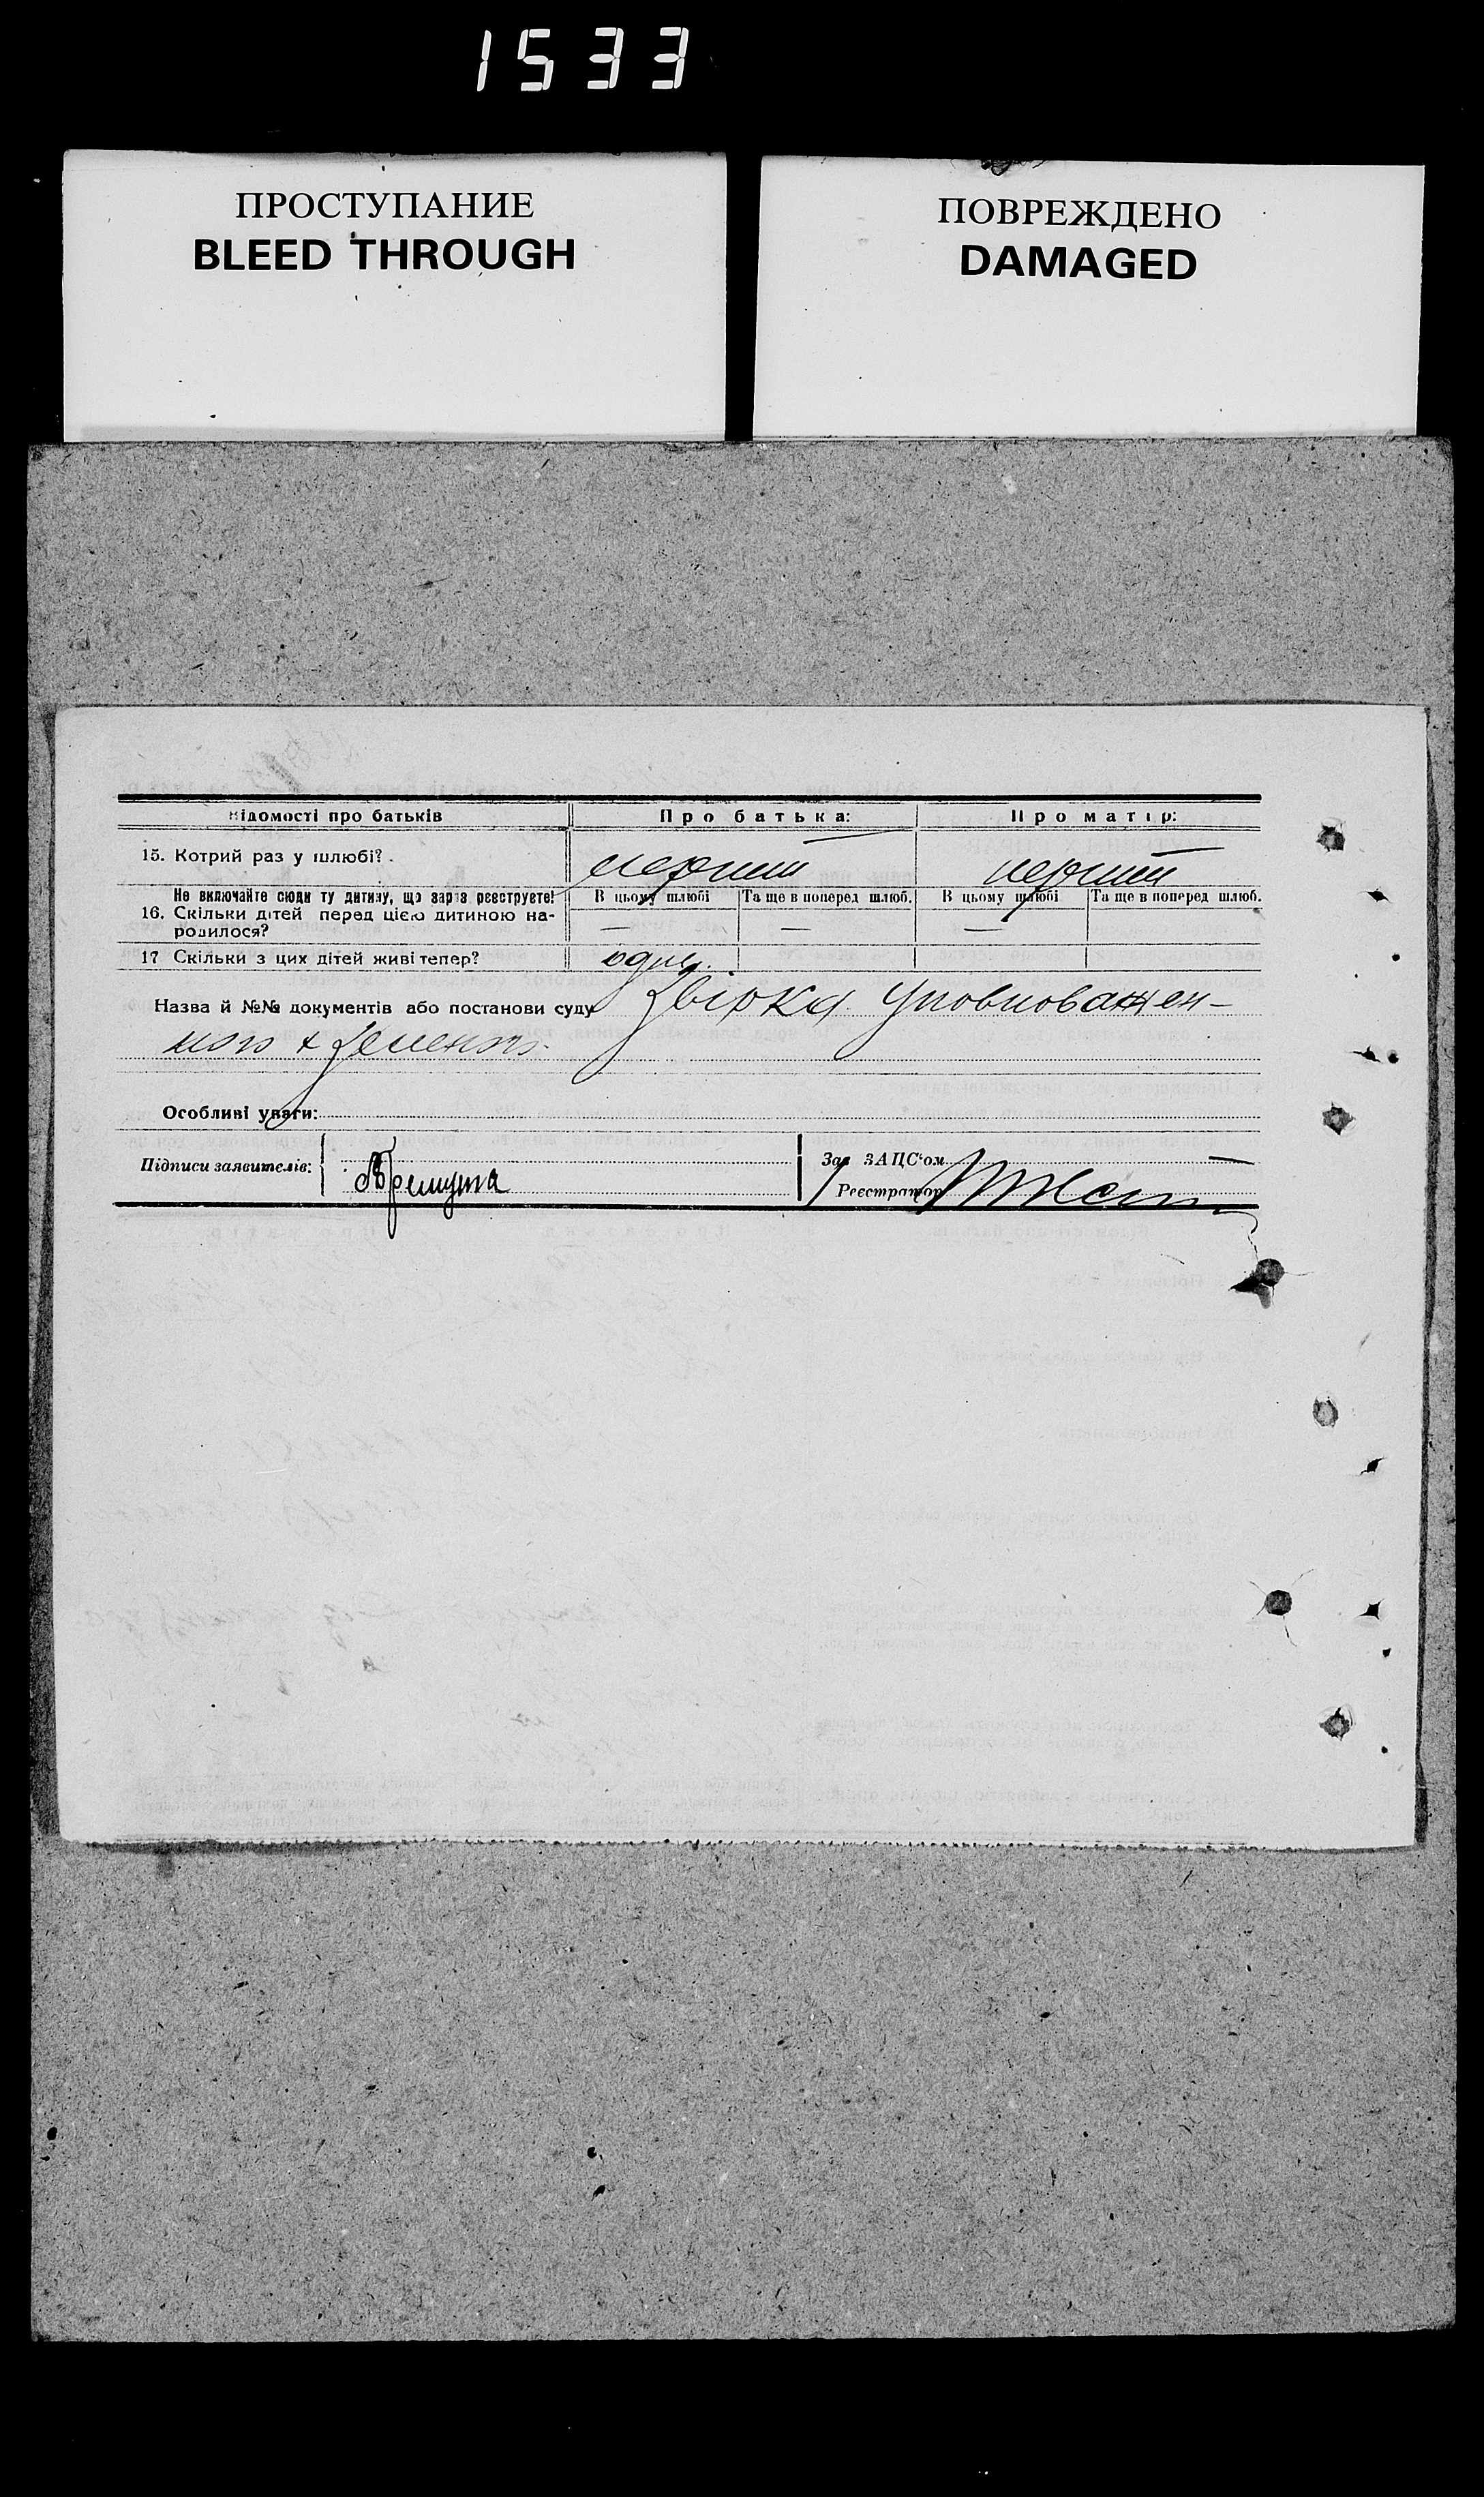 1533
ПРОСТУПАНИЕ
BLEED THROUGH
ПОВРЕЖДЕНО
DAMAGED
Відомості про батьків Про батька: Про матір:
15. Котрий раз у шлюбі? перший перший
Не включайте сюди ту дитину, що зараз реєструєте! В цьому шлюбі Та ще в поперед шлюб. В цьому шлюбі Та ще в поперед шлюб.
16. Скільки дітей перед цією дитиною на- — — —
родилося?
17 Скільки з цих дітей живі тепер?
Назва й №№ документів або постанови суду Звірка Уповноважен-
ного
Особливі уваги:
Підписи заявителів: Зав ЗАЦС'ом
Реєстратор